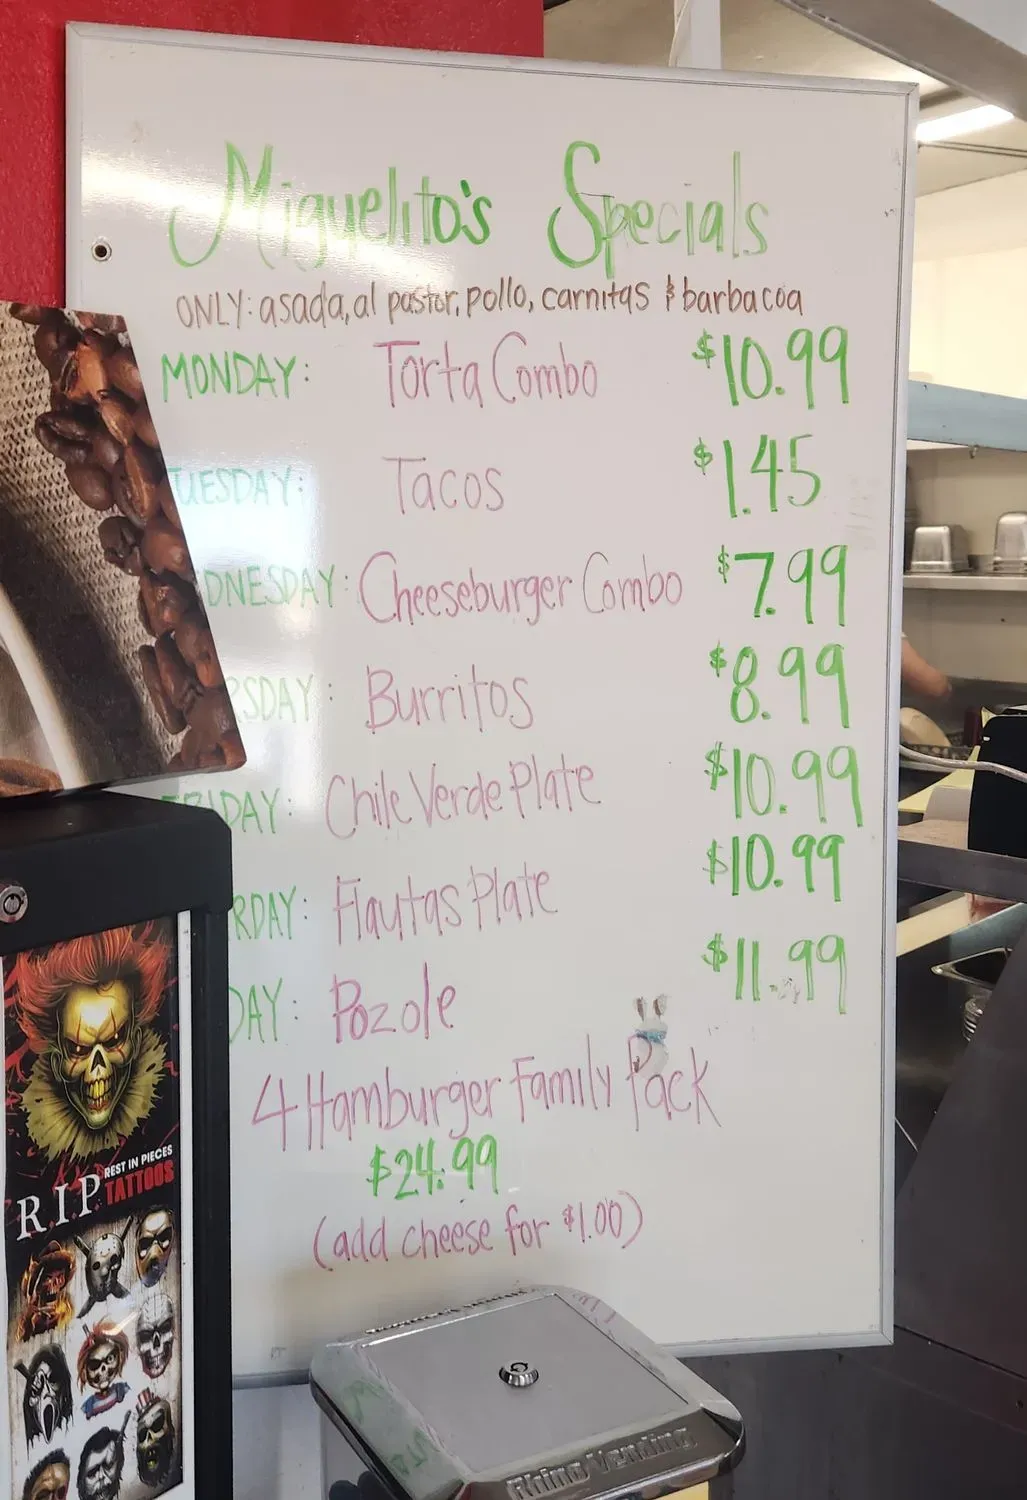 Miguelito's Specials
ONLY: asada, al pastor, pollo, carnitas & barbacoa
MONDAY: Torta Combo $10.99
TUESDAY: Tacos $1.45
DNESDAY: Cheeseburger Combo $7.99
RSDAY: Burritos $8.99
FRIDAY: Chile Verde Plate $10.99
RDAY: Flautas Plate $10.99
DAY: Pozole $11.99
4 Hamburger Family Pack
$24.99
(add cheese for $1.00)
R.I.P REST IN PIECES
TATTOOS
Rhino Vending